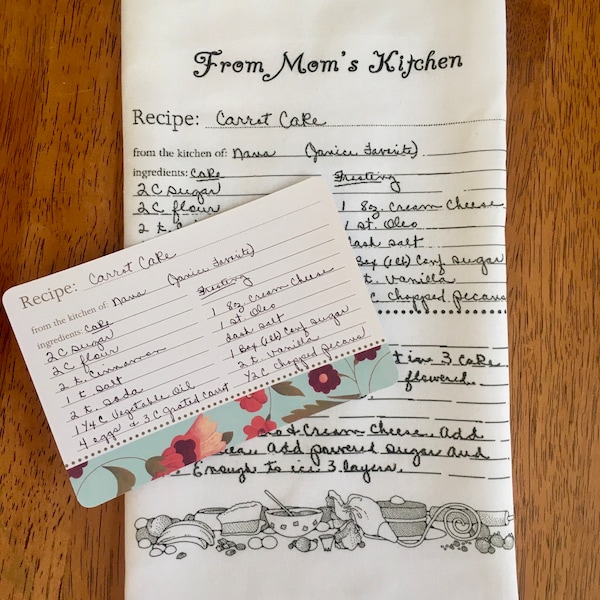 From Mom's Kitchen
Recipe: Carrot Cake
from the kitchen of: Nana (Janice Favorite)
ingredients: Cake Frosting
2 C sugar
2 C flour 1 8z. Cream Cheese
2 t. 1 St. Oleo
dash salt
Box (1lb) Conf sugar
t. Vanilla
C chopped pecans
in 3 cake
flowered.
& Cream Cheese. Add
Add powered sugar and
Enough to ice 3 layers.
Recipe: Carrot Cake
from the kitchen of: Nana (Janice Favorite)
ingredients: Cake Frosting
2 C sugar 1 8z. cream cheese
2 C flour 1 St. Oleo
2 t. Cinnamon dash salt
1 t. salt 1 Box (1lb) Conf sugar
2 t. soda 2 t. vanilla
1 1/4 C Vegetable Oil 1/2 C chopped pecans
4 eggs & 3 C grated carrot